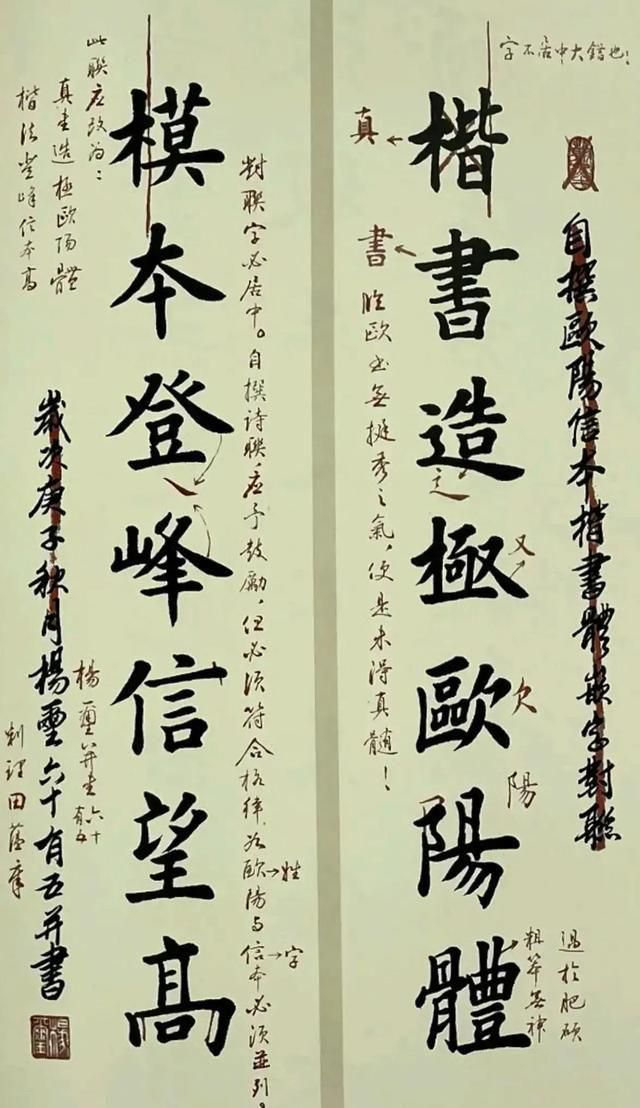 字不居中大錯也！
自撰歐陽信本楷書體嵌字對聯
楷書造極歐陽體
真
書
臨歐出無挺秀之氣，便是未得真髓！
辶
又
欠
陽
粗笨無神
過於肥碩
模本登峰信望高
對聯字必居中。自撰詩聯，應予鼓勵，但必須符合格律，如歐陽與信本必須並列！
姓
字
此聯應改為：
真書造極歐陽體
楷法登峰信本高
歲次庚子秋月楊璽六十有五并書
楊璽并書
六十有五
田蘊章